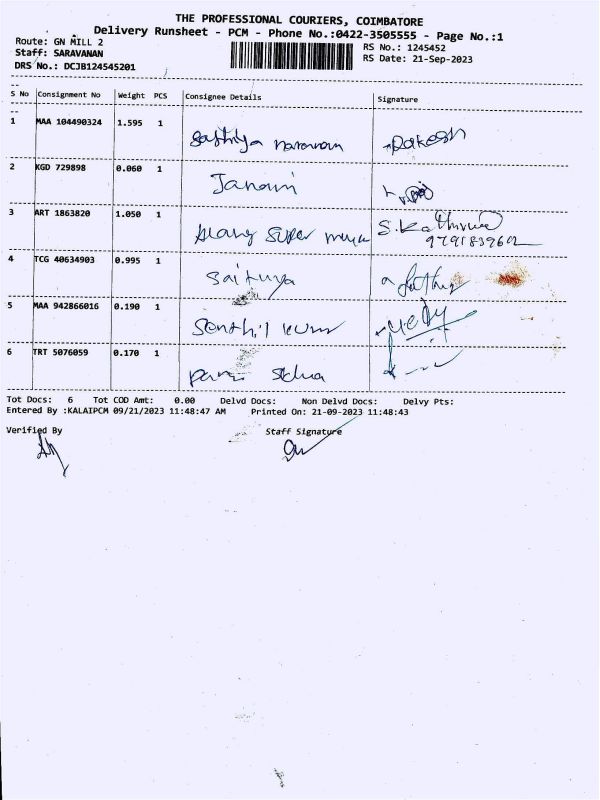 THE PROFESSIONAL COURIERS, COIMBATORE
Delivery Runsheet - PCM - Phone No.:0422-3505555 - Page No.:1
Route: GN MILL 2
Staff: SARAVANAN
DRS No.: DCJB124545201
RS No.: 1245452
RS Date: 21-Sep-2023
S No Consignment No Weight PCS Consignee Details Signature
1 MAA 104490324 1.595 1 Sathya Rakesh
2 KGD 729898 0.060 1 Janani
3 ART 1863820 1.050 1 super S.Kathirvel
4 TCG 40634903 0.995 1
5 MAA 942866016 0.190 1 Senthil kumr
6 TRT 5076059 0.170 1
Tot Docs: 6 Tot COD Amt: 0.00 Delvd Docs: Non Delvd Docs: Delvy Pts:
Entered By :KALAIPCM 09/21/2023 11:48:47 AM Printed On: 21-09-2023 11:48:43
Verified By Staff Signature